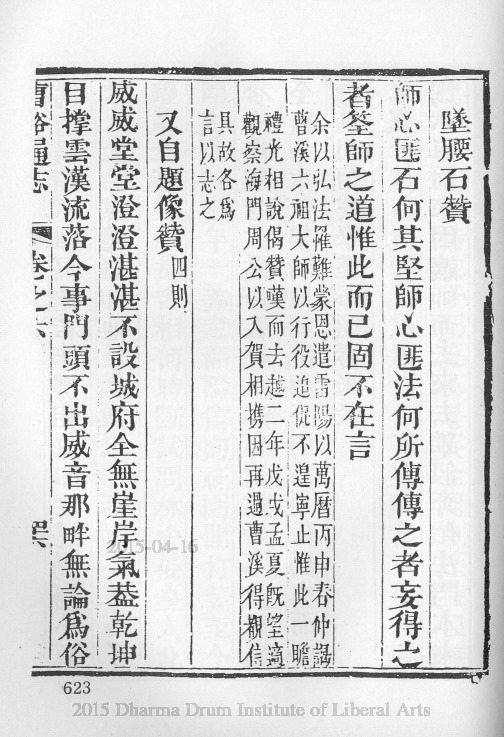 墜腰石贊
師心匪石何其堅師心匪法何所傳傳之者妄得之
者筌師之道惟此而已固不在言
余以弘法罹難蒙恩遣雷陽以萬曆丙申春仲謁
曹溪六祖大師以行役追促不遑寧止惟此一瞻
禮光相說偈贊嘆而去越二年戊戌孟夏既望適
觀察海門周公以入賀相携因再過曹溪得觀信
具故各為
言以志之
又自題像贊 四則
威威堂堂澄澄湛湛不設城府全無崖岸氣葢乾坤
目撑雲漢流落今事門頭不出威音那畔無論為俗
曹谿通志 卷之六
2015-04-16
623
2015 Dharma Drum Institute of Liberal Arts